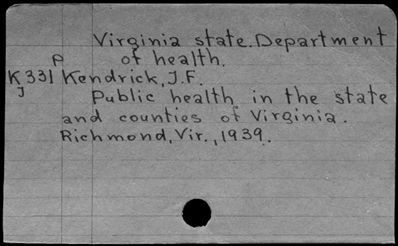 Virginia state. Department
of health.
P
K331 Kendrick, J.F.
J
Public health in the state
and counties of Virginia.
Richmond, Vir., 1939.